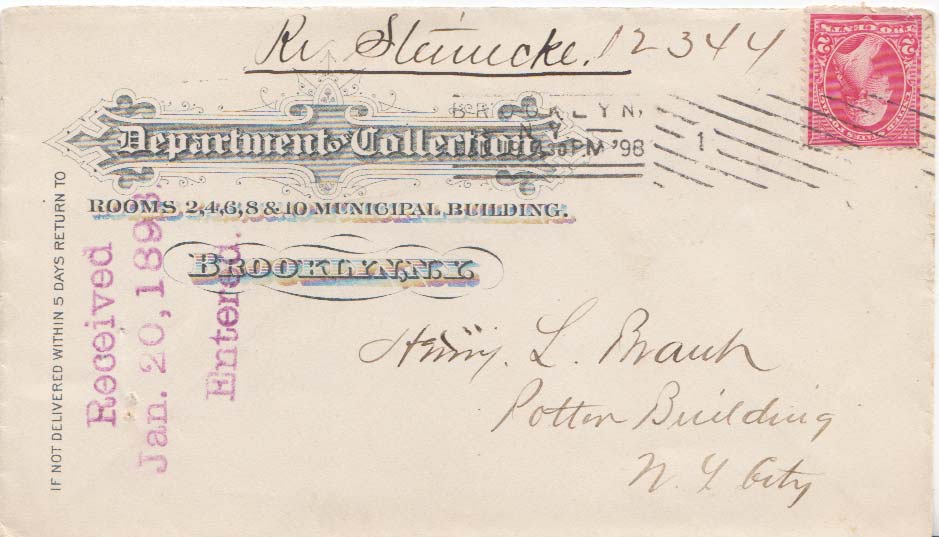 Re Steinecke. 12344
TWO CENTS
2 2
BROOKLYN,
N.Y.
30 PM '98
1
Department of Collection
ROOMS 2,4,6,8 & 10 MUNICIPAL BUILDING.
BROOKLYN, N.Y.
IF NOT DELIVERED WITHIN 5 DAYS RETURN TO
Received
Jan. 20, 1898.
Entered.
Henry. L. Brant
Potter Building
N. Y City